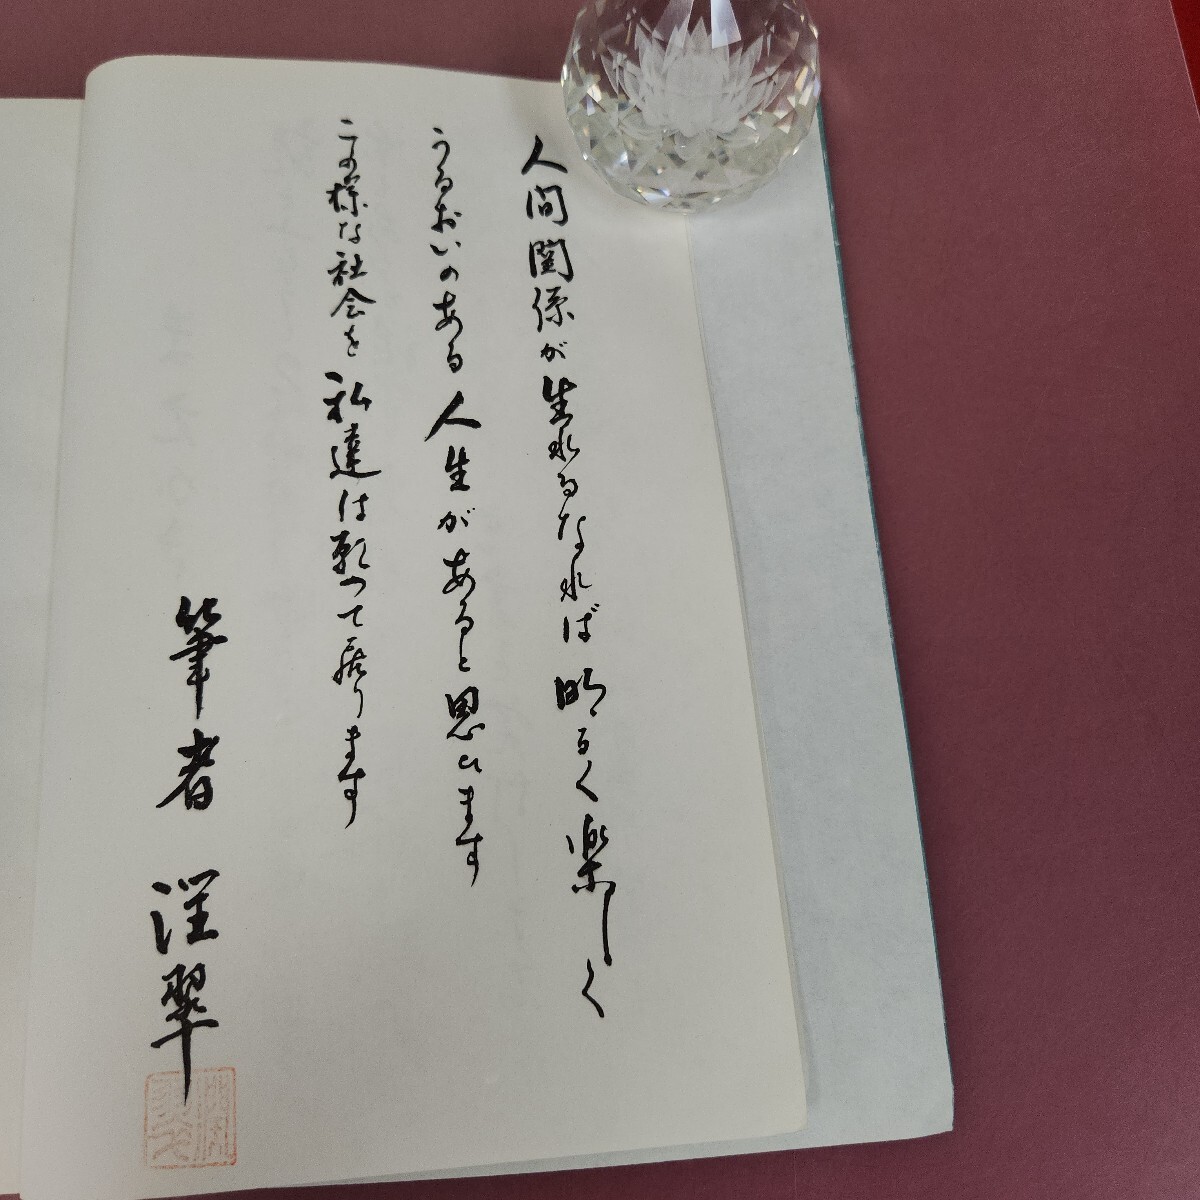 人間関係が生れるなれば明るく楽しく
うるおいのある人生があると思います
この様な社会を私達は願って居ります
筆者 翠